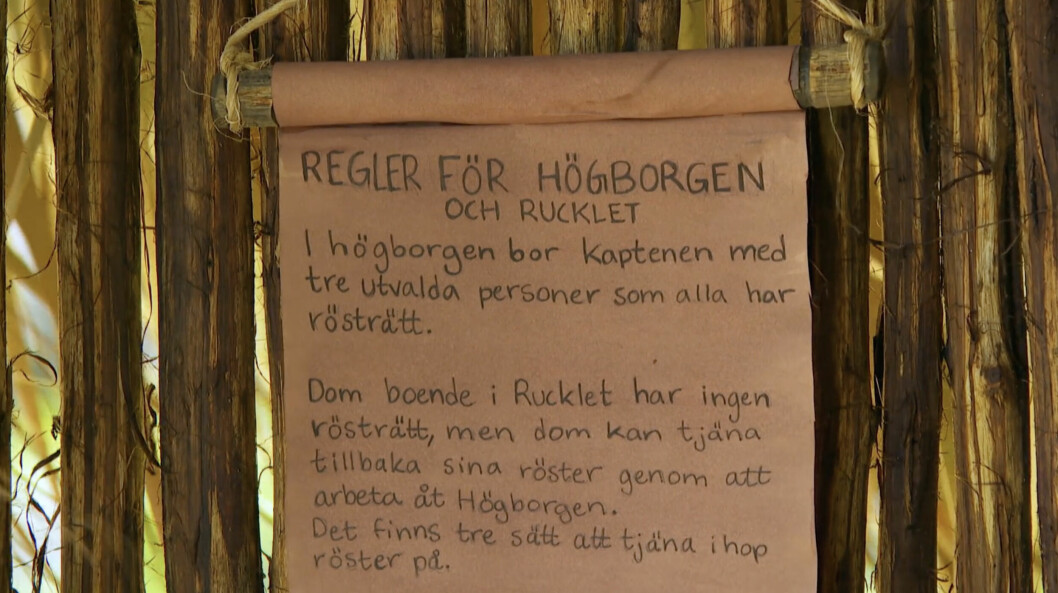 REGLER FÖR HÖGBORGEN
OCH RUCKLET
I högborgen bor kaptenen med
tre utvalda personer som alla har
rösträtt.
Dom boende i Rucklet har ingen
rösträtt, men dom kan tjäna
tillbaka sina röster genom att
arbeta åt Högborgen.
Det finns tre sätt att tjäna ihop
röster på.